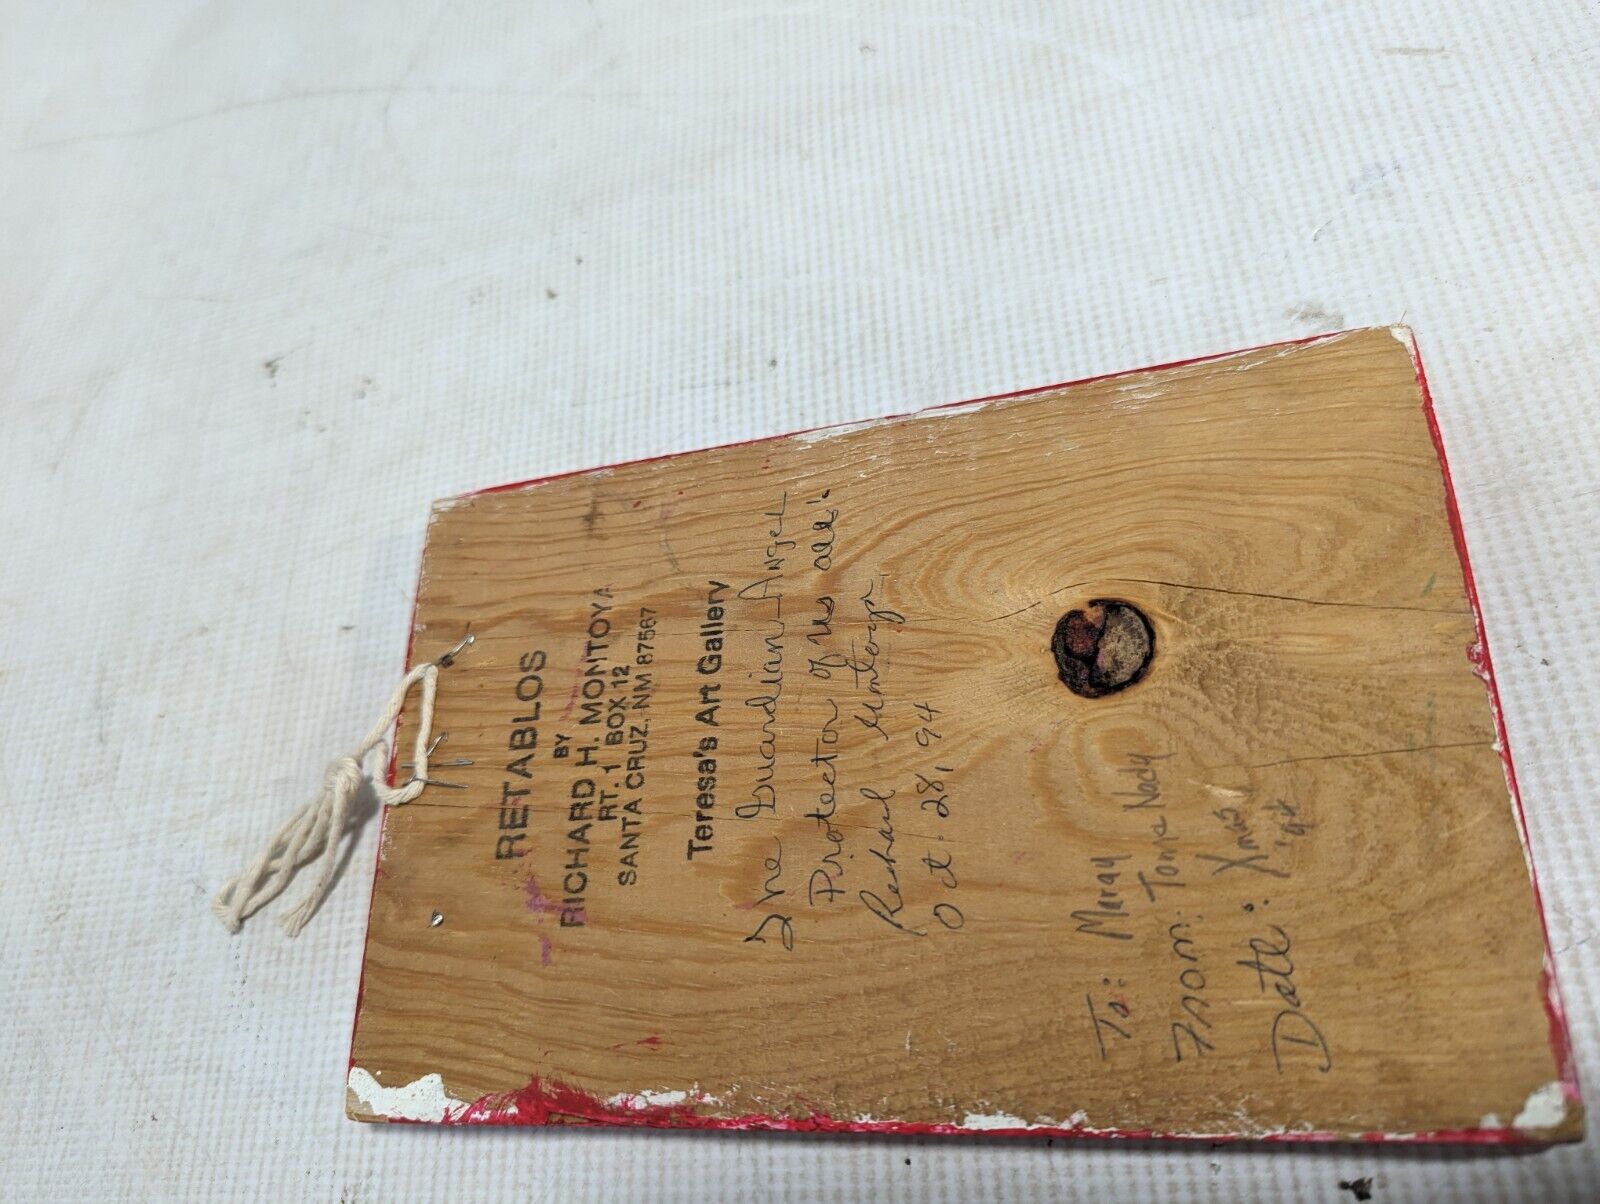 RETABLOS
BY
RICHARD H. MONTOYA
RT. 1 BOX 12
SANTA CRUZ, NM 87567
Teresa's Art Gallery
The Guardian Angel
Protector of us all!
Richard Montoya
Oct. 28, 94
To:
From:
Date: Xmas '94